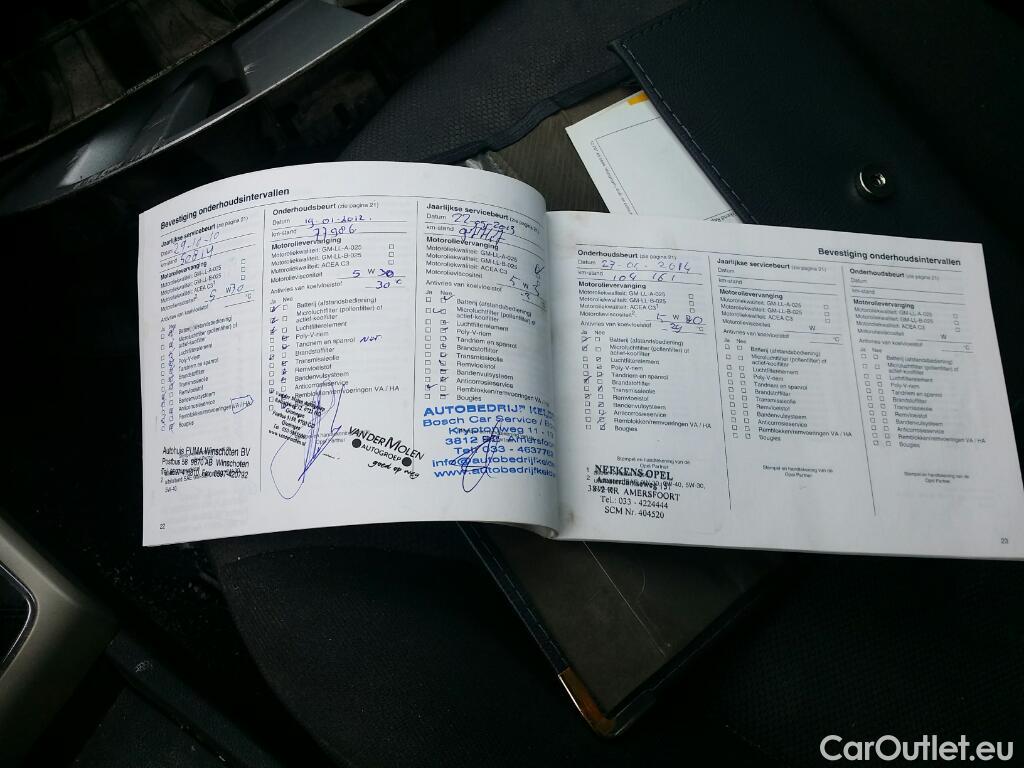 Bevestiging onderhoudsintervallen
Jaarlijkse servicebeurt (zie pagina 21)
Datum
km-stand
Motorolievervanging
Motoroliekwaliteit: GM-LL-A-025
Motoroliekwaliteit: GM-LL-B-025
Motoroliekwaliteit: ACEA C3
Motorolieviscositeit 5 W30
Antivries van koelvloeistof °C
Ja Nee
Batterij (afstandsbediening)
Microluchtfilter (pollenfilter) of
actief-koolfilter
Luchtfilterelement
Poly V-riem
Tandriem en spanrol
Brandstoffilter
Transmissieolie
Remvloeistof
Bandenvulsysteem
Anticorrosieservice
Remblokken/remvoeringen VA / HA
Bougies
Autohuis FIJMA Winschoten BV
Postbus 58 9670 AB Winschoten
22
Onderhoudsbeurt (zie pagina 21)
Datum 19-01-2012.
km-stand 77986
Motorolievervanging
Motoroliekwaliteit: GM-LL-A-025
Motoroliekwaliteit: GM-LL-B-025
Motoroliekwaliteit: ACEA C3
Motorolieviscositeit 5 W 30
Antivries van koelvloeistof 30 °C
Ja Nee
Batterij (afstandsbediening)
Microluchtfilter (pollenfilter) of
actief-koolfilter
Luchtfilterelement
Poly V-riem
Tandriem en spanrol
Brandstoffilter
Transmissieolie
Remvloeistof
Bandenvulsysteem
Anticorrosieservice
Remblokken/remvoeringen VA / HA
VAN DER MOLEN
AUTOGROEP
goed op weg
Jaarlijkse servicebeurt (zie pagina 21)
Datum 22-05-2013
km-stand
Motorolievervanging
Motoroliekwaliteit: GM-LL-A-025
Motoroliekwaliteit: GM-LL-B-025
Motoroliekwaliteit: ACEA C3
Motorolieviscositeit 5 W
Antivries van koelvloeistof
Ja Nee
Batterij (afstandsbediening)
Microluchtfilter (pollenfilter) of
actief-koolfilter
Luchtfilterelement
Poly V-riem
Tandriem en spanrol
Brandstoffilter
Transmissieolie
Remvloeistof
Bandenvulsysteem
Anticorrosieservice
Remblokken/remvoeringen VA / HA
Bougies
AUTOBEDRIJF
Bosch Car Service
Kryptonweg 11 - 13
3812 Amersfoort
Tel: 033 - 4637762
Bevestiging onderhoudsintervallen
Onderhoudsbeurt (zie pagina 21)
Datum 2014
km-stand 104 161
Motorolievervanging
Motoroliekwaliteit: GM-LL-A-025
Motoroliekwaliteit: GM-LL-B-025
Motoroliekwaliteit: ACEA C3
Motorolieviscositeit 5 W 30
Antivries van koelvloeistof °C
Ja Nee
Batterij (afstandsbediening)
Microluchtfilter (pollenfilter) of
actief-koolfilter
Luchtfilterelement
Poly V-riem
Tandriem en spanrol
Brandstoffilter
Transmissieolie
Remvloeistof
Bandenvulsysteem
Anticorrosieservice
Remblokken/remvoeringen VA / HA
Bougies
NEFKENS OPEL
Amsterdamseweg
3812 RR AMERSFOORT
Tel.: 033 - 4224444
SCM Nr. 404520
Jaarlijkse servicebeurt (zie pagina 21)
Datum
km-stand
Motorolievervanging
Motoroliekwaliteit: GM-LL-A-025
Motoroliekwaliteit: GM-LL-B-025
Motoroliekwaliteit: ACEA C3
Motorolieviscositeit W
Antivries van koelvloeistof °C
Ja Nee
Batterij (afstandsbediening)
Microluchtfilter (pollenfilter) of
actief-koolfilter
Luchtfilterelement
Poly V-riem
Tandriem en spanrol
Brandstoffilter
Transmissieolie
Remvloeistof
Bandenvulsysteem
Anticorrosieservice
Remblokken/remvoeringen VA / HA
Bougies
Stempel en handtekening van de
Opel Partner
Onderhoudsbeurt (zie pagina 21)
Datum
km-stand
Motorolievervanging
Motoroliekwaliteit: GM-LL-A-025
Motoroliekwaliteit: GM-LL-B-025
Motoroliekwaliteit: ACEA C3
Motorolieviscositeit W
Antivries van koelvloeistof °C
Ja Nee
Batterij (afstandsbediening)
Microluchtfilter (pollenfilter) of
actief-koolfilter
Luchtfilterelement
Poly V-riem
Tandriem en spanrol
Brandstoffilter
Transmissieolie
Remvloeistof
Bandenvulsysteem
Anticorrosieservice
Remblokken/remvoeringen VA / HA
Bougies
Stempel en handtekening van de
Opel Partner
23
CarOutlet.eu